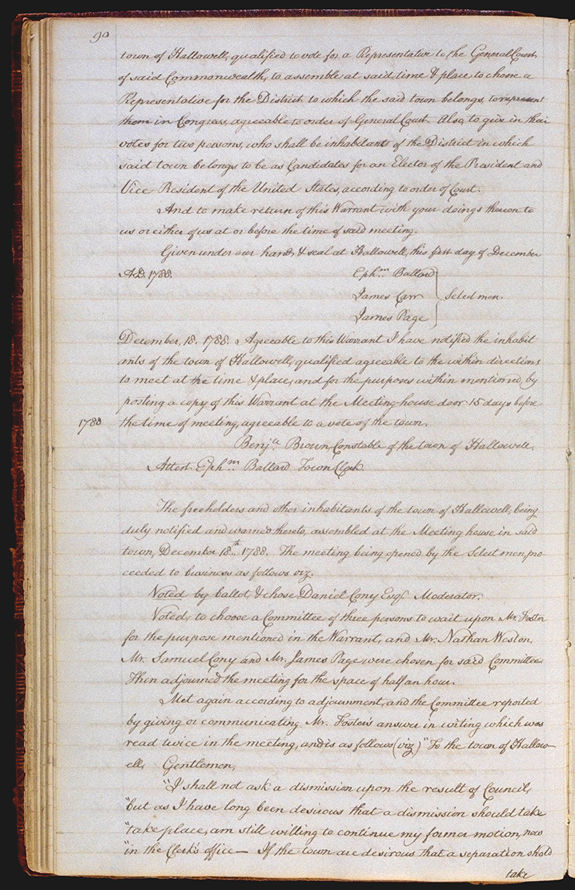 90
town of Hallowell, qualified to vote for a Representative to the General Court
of said Commonwealth, to assemble at said time & place to choose a
Representative for the District to which the said town belongs, to represent
them in Congress, agreeable to order of General Court. Also, to give in their
votes for two persons, who shall be inhabitants of the District in which
said town belongs to be as Candidates for an Elector of the President and
Vice President of the United States, according to order of Court.
And to make return of this Warrant with your doings thereon to
us or either of us at or before the time of said meeting.
Given under our hands & seal at Hallowell, this first day of December
A.D. 1788.
Ephm. Ballard
James Carr
Selectmen.
James Page
December, 18. 1788. Agreeable to this Warrant I have notified the inhabit
ants of the town of Hallowell, qualified agreeable to the within directions
to meet at the time & place, and for the purposes within mentioned, by
posting a copy of this Warrant at the Meeting house door 15 days before
1788
the time of meeting, agreeable to a vote of the town.
Benja. Brown Constable of the town of Hallowell.
Attest. Ephm. Ballard Town Clerk
The freeholders and other inhabitants of the town of Hallowell, being
duly notified and warned thereto, assembled at the Meeting house in said
town, December 18th. 1788. The meeting being opened by the Select men, pro
ceeded to business as follows viz.
Voted by ballot, & chose Daniel Cony Esqr. Moderator.
Voted, to choose a Committee of three persons to wait upon Mr. Foster
for the purpose mentioned in the Warrant, and Mr. Nathan Weston.
Mr. Samuel Cony and Mr. James Page were chosen for said Committee
Then adjourned the meeting for the space of half an hour.
Met again according to adjournment, and the Committee reported
by giving or communicating Mr. Foster's answer in writing which was
read twice in the meeting, and is as follows (viz) "To the town of Hallow-
ell, Gentlemen,
"I shall not ask a dismission upon the result of Council,
"but as I have long been desirous that a dismission should take
"take place, am still willing to continue my former motion, now
"in the Clerk's office — If the town are desirous that a separation should
take